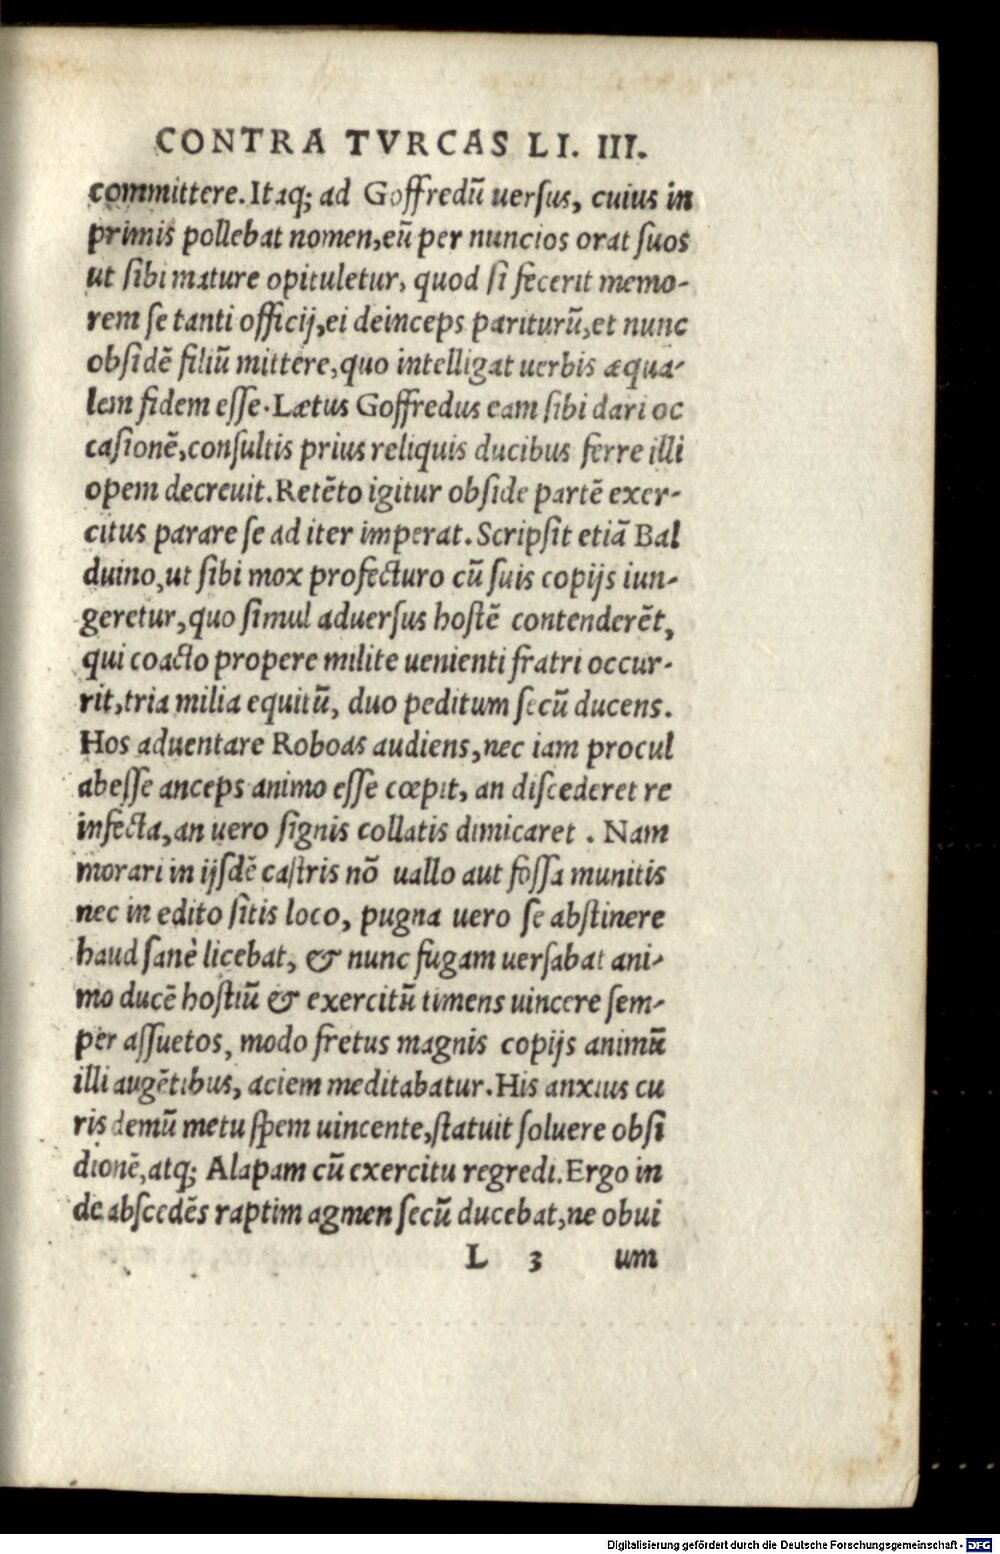 CONTRA TVRCAS LI. III.
committere. Itaq; ad Goffredū uersus, cuius in
primis pollebat nomen, eū per nuncios orat suos
ut sibi mature opituletur, quod si fecerit memo-
rem se tanti officij, ei deinceps pariturū, et nunc
obsidē filiū mittere, quo intelligat uerbis æqua-
lem fidem esse. Lætus Goffredus eam sibi dari oc
casionē, consultis prius reliquis ducibus ferre illi
opem decreuit. Retēto igitur obside partē exer-
citus parare se ad iter imperat. Scripsit etiā Bal
duino, ut sibi mox profecturo cū suis copijs iun-
geretur, quo simul aduersus hostē contenderēt,
qui coacto propere milite uenienti fratri occur-
rit, tria milia equitū, duo peditum secū ducens.
Hos aduentare Roboas audiens, nec iam procul
abesse anceps animo esse cœpit, an discederet re
infecta, an uero signis collatis dimicaret . Nam
morari in ijsdē castris nō uallo aut fossa munitis
nec in edito sitis loco, pugna uero se abstinere
haud sanè licebat, & nunc fugam uersabat ani-
mo ducē hostiū & exercitū timens uincere sem-
per assuetos, modo fretus magnis copijs animū
illi augētibus, aciem meditabatur. His anxius cu
ris demū metu spem uincente, statuit soluere obsi
dionē, atq; Alapam cū exercitu regredi. Ergo in
de abscedēs raptim agmen secū ducebat, ne obui
L 3 um
Digitalisierung gefördert durch die Deutsche Forschungsgemeinschaft - DFG